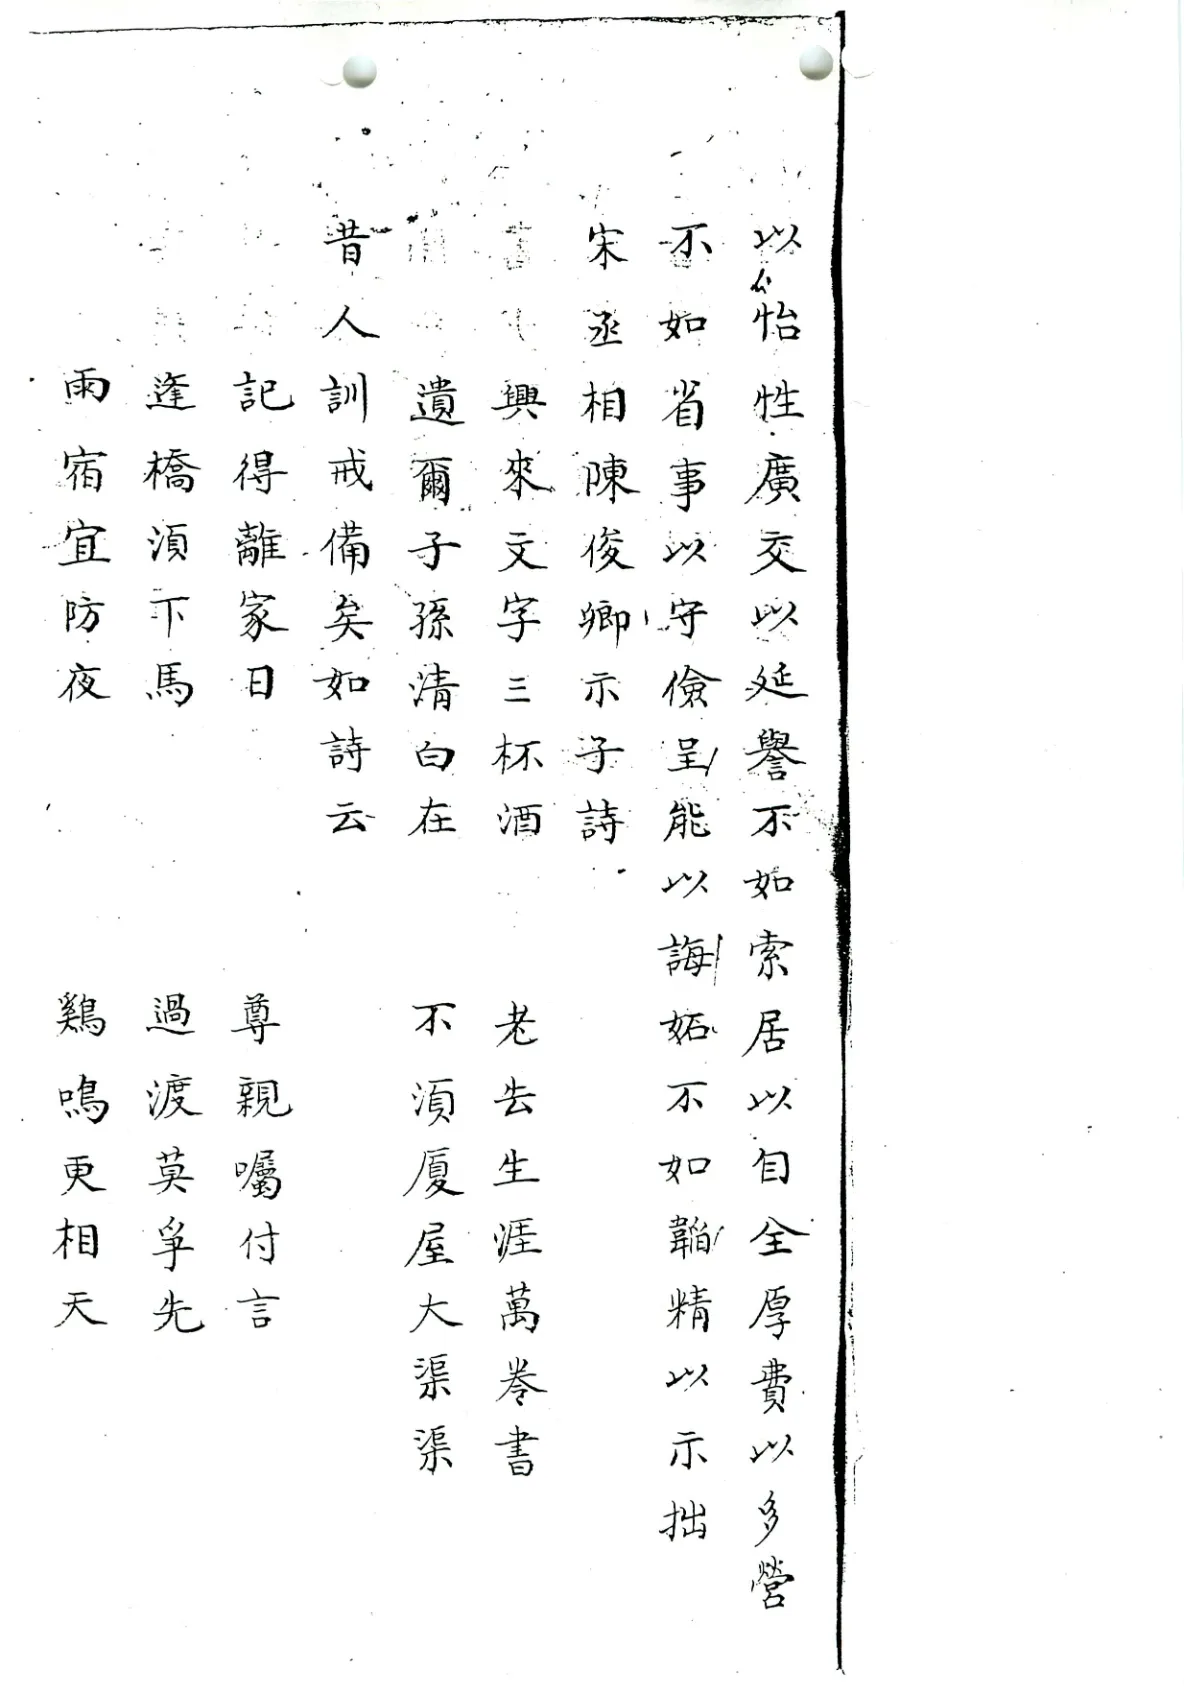 以怡性廣交以延譽不如索居以自全厚費以多營
不如省事以守儉呈能以誨妬不如韜精以示拙
宋丞相陳俊卿示子詩
興來文字三杯酒　老去生涯萬卷書
遺爾子孫清白在　不須厦屋大渠渠
昔人訓戒備矣如詩云
記得離家日　尊親囑付言
逢橋須下馬　過渡莫爭先
雨宿宜防夜　鷄鳴更相天